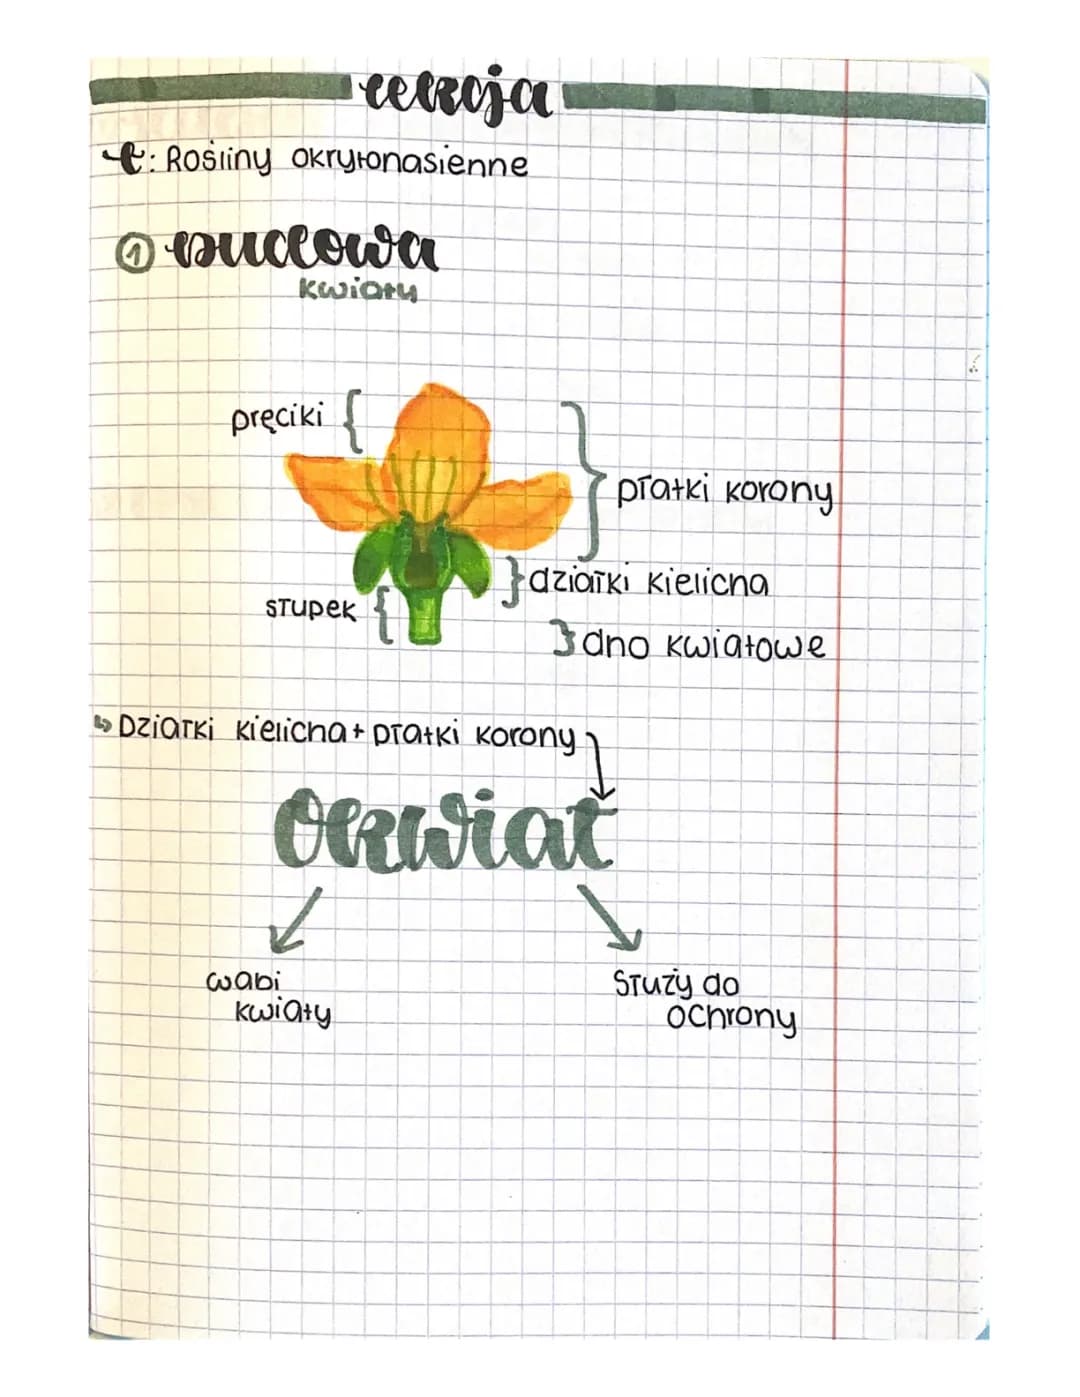 lekcja
t: Rośliny okrytonasienne
① Budowa
kwiatu
pręciki
płatki korony
działki kielicha
słupek
dno kwiatowe
↳ Działki kielicha + płatki korony
Okwiat
wabi
kwiaty
Służy do
ochrony